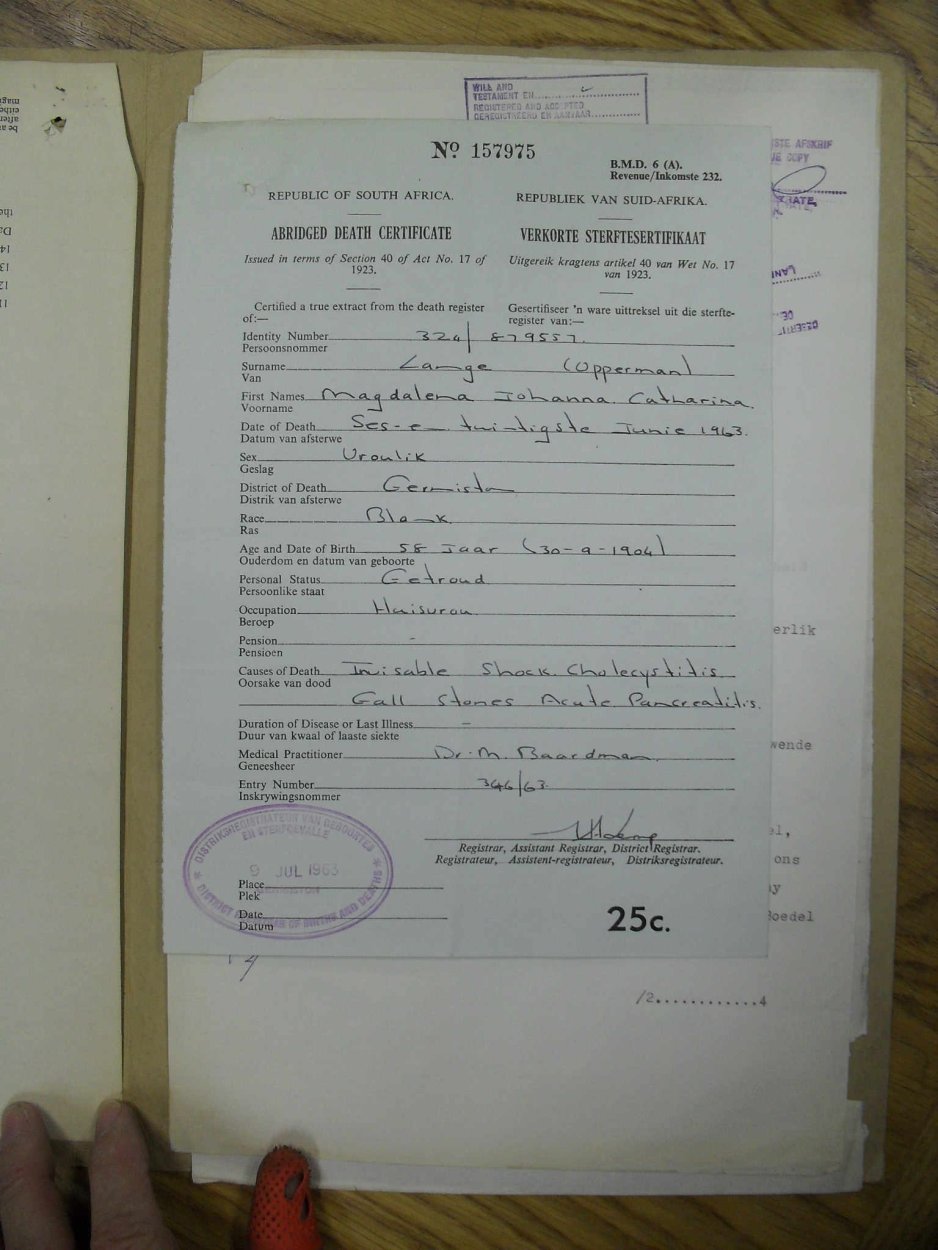 WILL AND
TESTAMENT EN
REGISTERED AND ACCEPTED
GEREGISTREERD EN AANVAAR
AFSKRIF
COPY
Nº 157975
B.M.D. 6 (A).
Revenue/Inkomste 232.
REPUBLIC OF SOUTH AFRICA.
REPUBLIEK VAN SUID-AFRIKA.
ABRIDGED DEATH CERTIFICATE
VERKORTE STERFTESERTIFIKAAT
Issued in terms of Section 40 of Act No. 17 of
1923.
Uitgereik kragtens artikel 40 van Wet No. 17
van 1923.
Certified a true extract from the death register
of:—
Gesertifiseer 'n ware uittreksel uit die sterfte-
register van:—
Identity Number 324/879557.
Persoonsnommer
Surname Lange (Opperman)
Van
First Names Magdalena Johanna Catharina.
Voorname
Date of Death Ses-en-twintigste Junie 1963.
Datum van afsterwe
Sex Vroulik
Geslag
District of Death Germiston
Distrik van afsterwe
Race Blank
Ras
Age and Date of Birth 58 Jaar (30-9-1904)
Ouderdom en datum van geboorte
Personal Status Getroud
Persoonlike staat
Occupation Huisvrou
Beroep
Pension -
Pensioen
Causes of Death Invisable Shock. Cholecystitis
Oorsake van dood
Gall Stones Acute Pancreatitis.
Duration of Disease or Last Illness -
Duur van kwaal of laaste siekte
Medical Practitioner Dr. M. Baardman.
Geneesheer
Entry Number 346/63.
Inskrywingsnommer
Registrar, Assistant Registrar, District Registrar.
Registrateur, Assistent-registrateur, Distriksregistrateur.
DISTRIKSREGISTRATEUR VAN GEBOORTEN
EN STERFGEVALLE
9 JUL 1963
GERMISTON
DISTRICT REGISTRAR OF BIRTHS AND DEATHS
Place
Plek
Date
Datum
25c.
erlik
wende
ons
Boedel
/2............4